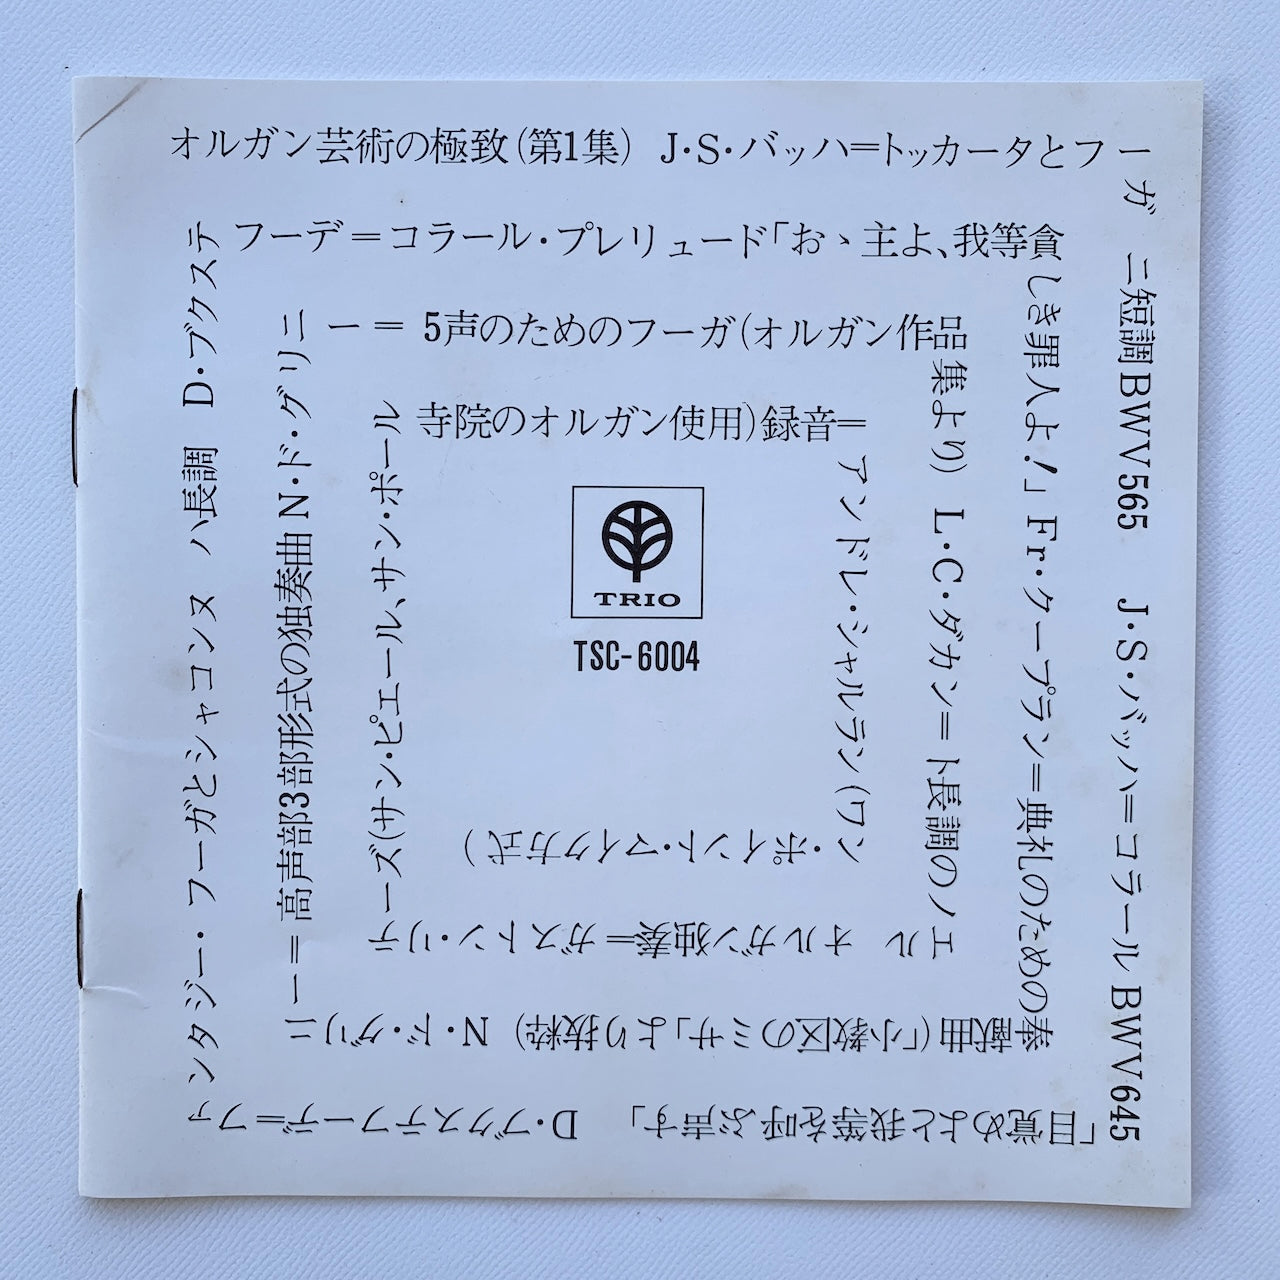 オルガン芸術の極致(第1集) J・S・バッハ=トッカータとフー
ガ ニ短調BWV565 J・S・バッハ=コラールBWV645
「目覚めよと我等を呼ぶ声す」 D・ブクステフーデ=ファ
ンタジー・フーガとシャコンヌ ハ長調 D・ブクステ
フーデ=コラール・プレリュード「おゝ主よ、我等貪
しき罪人よ!」Fr・クープラン=典礼のための奉
献曲(「小教区のミサ」より抜粋) N・ド・グリニ
ー=高声部3部形式の独奏曲 N・ド・グリニ
ー=5声のためのフーガ(オルガン作品
集より) L・C・ダカン=ト長調のノ
エル オルガン独奏=ガストン・リテ
ーズ(サン・ピエール、サン・ポール
寺院のオルガン使用)録音=
アンドレ・シャルラン(ワン
・ポイント・マイク方式)
TRIO
TSC-6004